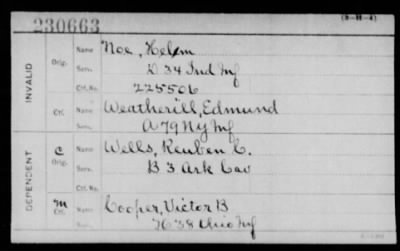 (3-111-a)
230663
INVALID
Orig.
Name Noe, Helem
Serv. D 34 Ind Inf
Ctf. No. 225506
Ctf. Name Weatherill, Edmund
Serv. A 79 Ny Inf
DEPENDENT
C
Orig.
Name Wells, Reuben C.
Serv. B 3 Ark Cav
Ctf. No.
m
Ctf.
Name Cooper, Victor B
Serv. 38 Ohio Inf